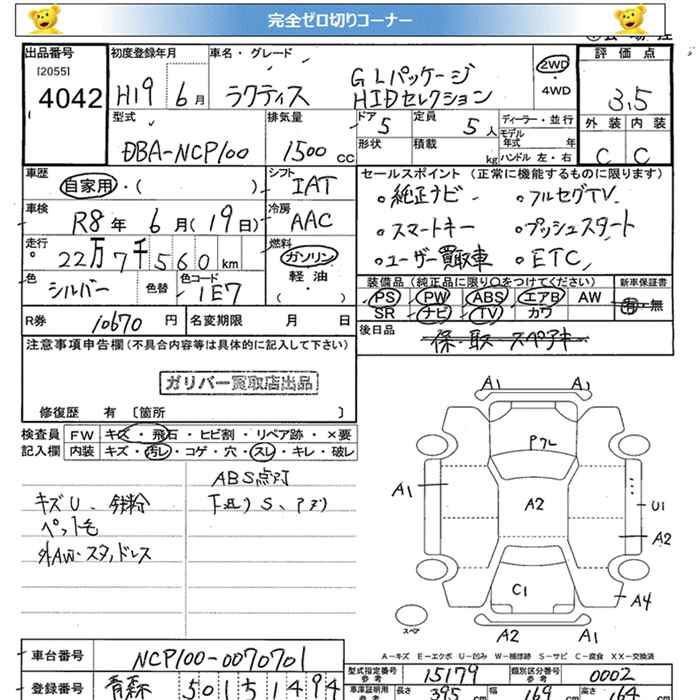 完全ゼロ切りコーナー
出品番号 初度登録年月 車名・グレード 評価点
[2055]
4042 H19 6月 ラクティス GLパッケージ HIDセレクション 2WD・4WD 3.5
型式 排気量 ドア 5 定員 5人 ディーラー・並行 外装 内装
モデル年式 年
DBA-NCP100 1500cc 形状 積載 kg ハンドル 左・右 C C
車歴 自家用・( ) シフト IAT セールスポイント(正常に機能するものに限ります)
。純正ナビ 。フルセグTV
車検 R8年 6月(19日) 冷房 AAC 。スマートキー 。プッシュスタート
走行 22万7千560km 燃料 ガソリン 軽油・( ) 。ユーザー買取車 。ETC
色 シルバー 色替 色コード 1E7 装備品(純正品に限り○をつけてください) 新車保証書
PS PW ABS エアB AW 有・無
SR ナビ TV カワ
R券 10670円 名変期限 月 日 後日品 保・取・スペアキー
注意事項申告欄(不具合内容等は具体的に記入して下さい)
ガリバー買取店出品
修復歴 有 [箇所 ]
検査員 FW キズ・飛石・ヒビ割・リペア跡・×要
記入欄 内装 キズ・汚レ・コゲ・穴・スレ・キレ・破レ
ABS点灯
キズU、鉄粉
ペット毛
外AW・スタッドレス
A1 A1
フル
A1 A2 U1
A2
C1 A4
スペア
A2 A1
A-キズ E-エクボ U-凹み W-補修跡 S-サビ C-腐食 XX-交換済
車台番号 NCP100-0070701 型式指定番号 参考 15179 類別区分番号 参考 0002
登録番号 青森 501 5 1494 車庫証明用 参考 長さ 395cm 幅 169cm 高さ 154cm